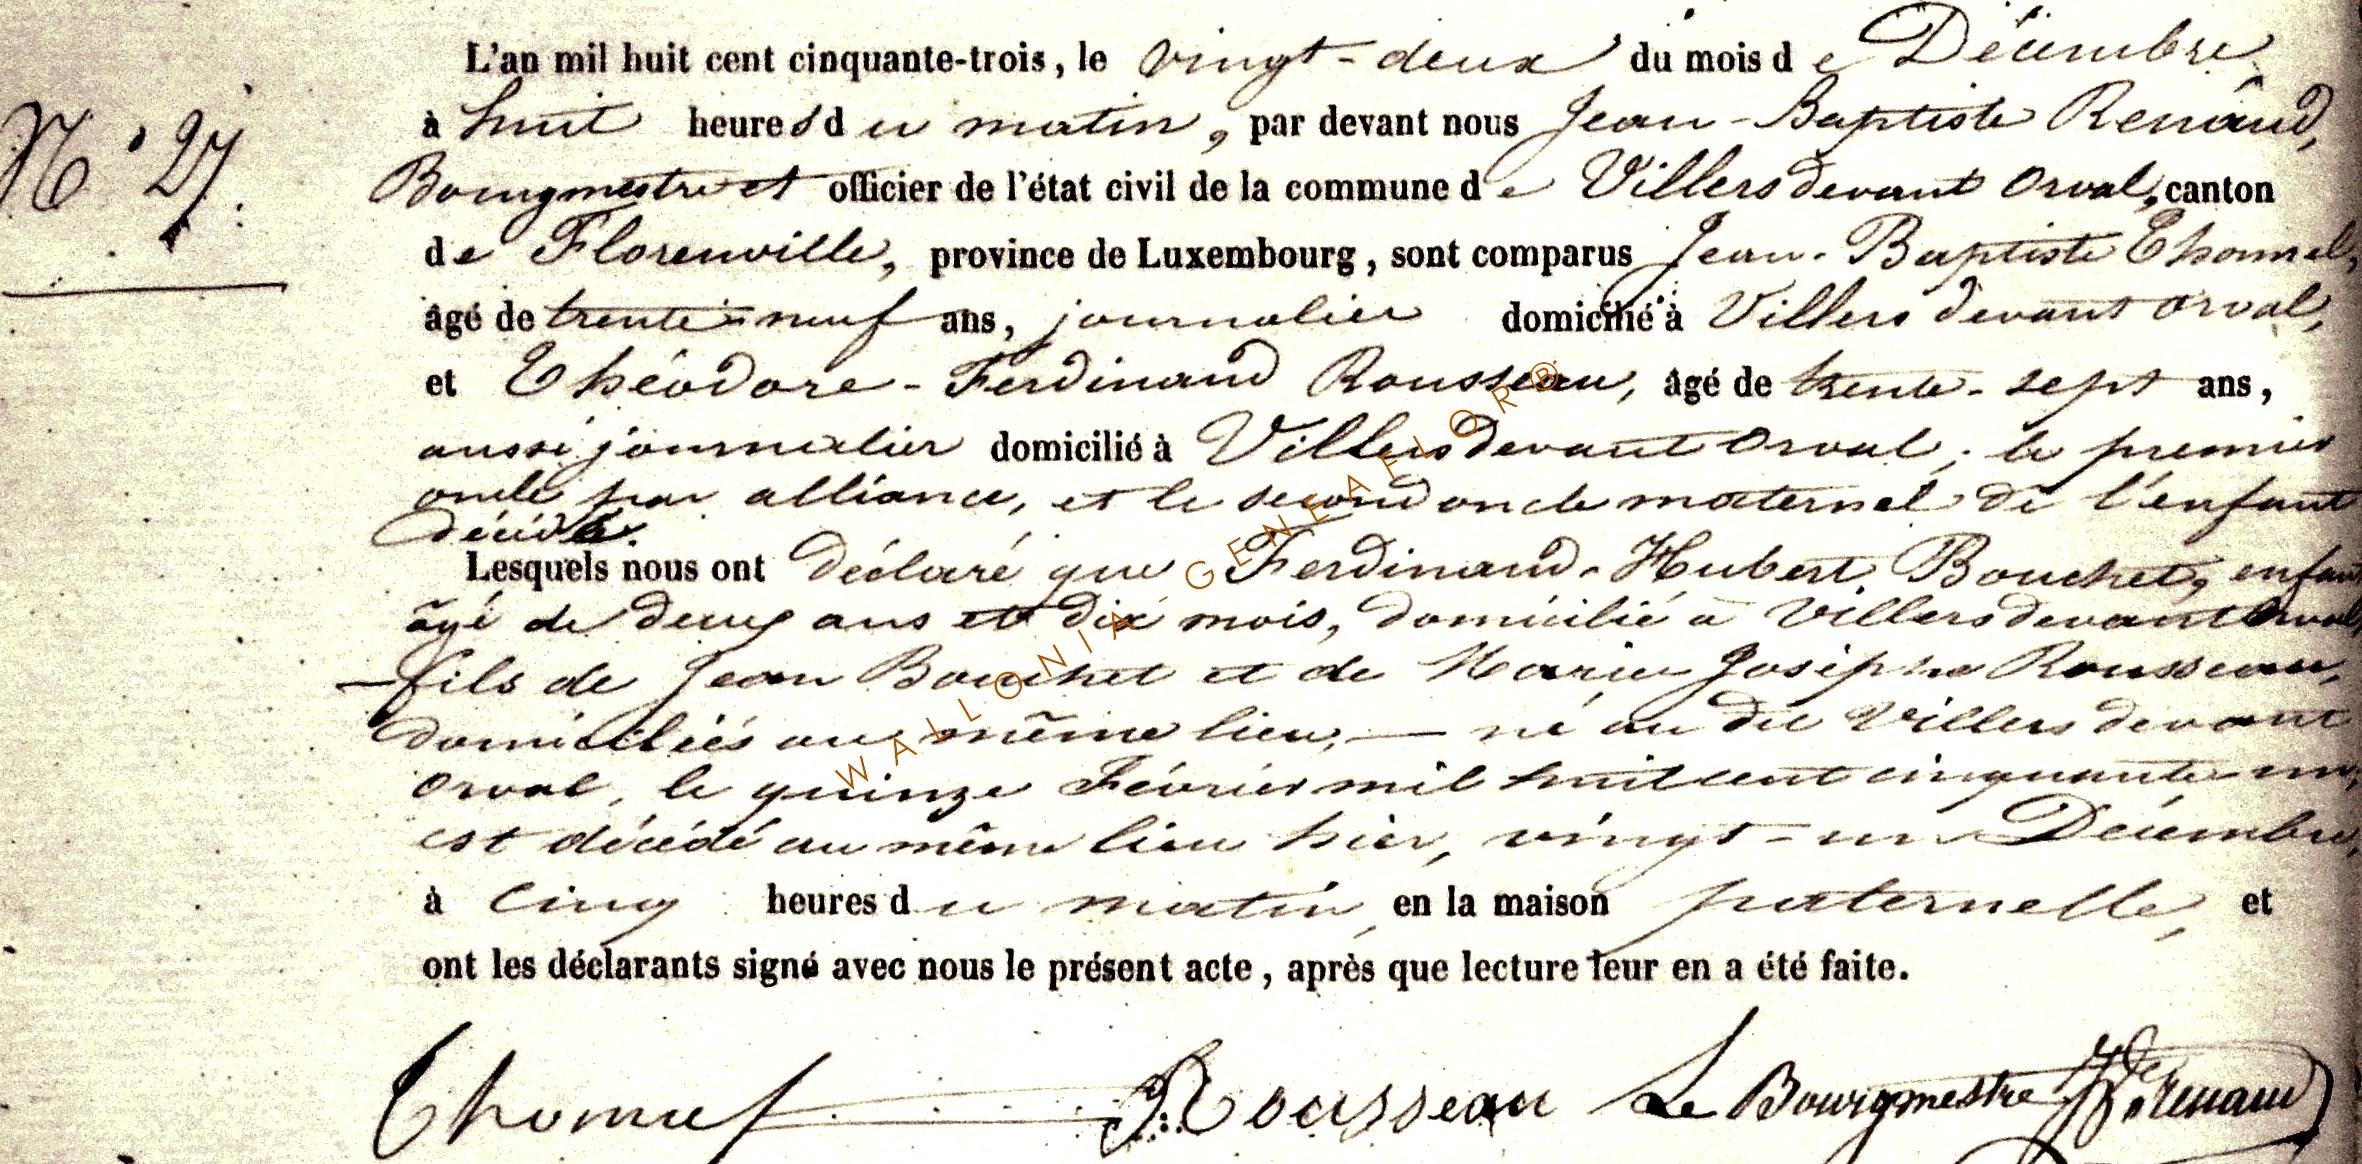 L'an mil huit cent cinquante-trois, le vingt-deux du mois de Décembre
à huit heures du matin, par devant nous Jean-Baptiste Renaud,
N° 27.
Bourgmestre et officier de l'état civil de la commune de Villers devant Orval, canton
de Florenville, province de Luxembourg, sont comparus Jean-Baptiste
âgé de trente-neuf ans, journalier domicilié à Villers devant Orval,
et Théodore-Ferdinand Rousseau, âgé de trente-sept ans,
aussi journalier domicilié à Villers devant Orval; le premier
oncle par alliance, et le second oncle maternel de l'enfant
décédé.
Lesquels nous ont déclaré que Ferdinand-Hubert Bouchet, enfant
âgé de deux ans et dix mois, domicilié à Villers devant Orval,
fils de Jean Bouchet et de Marie Josèphe Rousseau,
domiciliés au même lieu, — né au dit Villers devant
Orval, le quinze Février mil huit cent cinquante-un,
est décédé au même lieu hier, vingt-un Décembre,
à cinq heures du matin, en la maison paternelle, et
ont les déclarants signé avec nous le présent acte, après que lecture leur en a été faite.
Rousseau Le Bourgmestre Renaud
WALLONIA-GENEAFLOR®